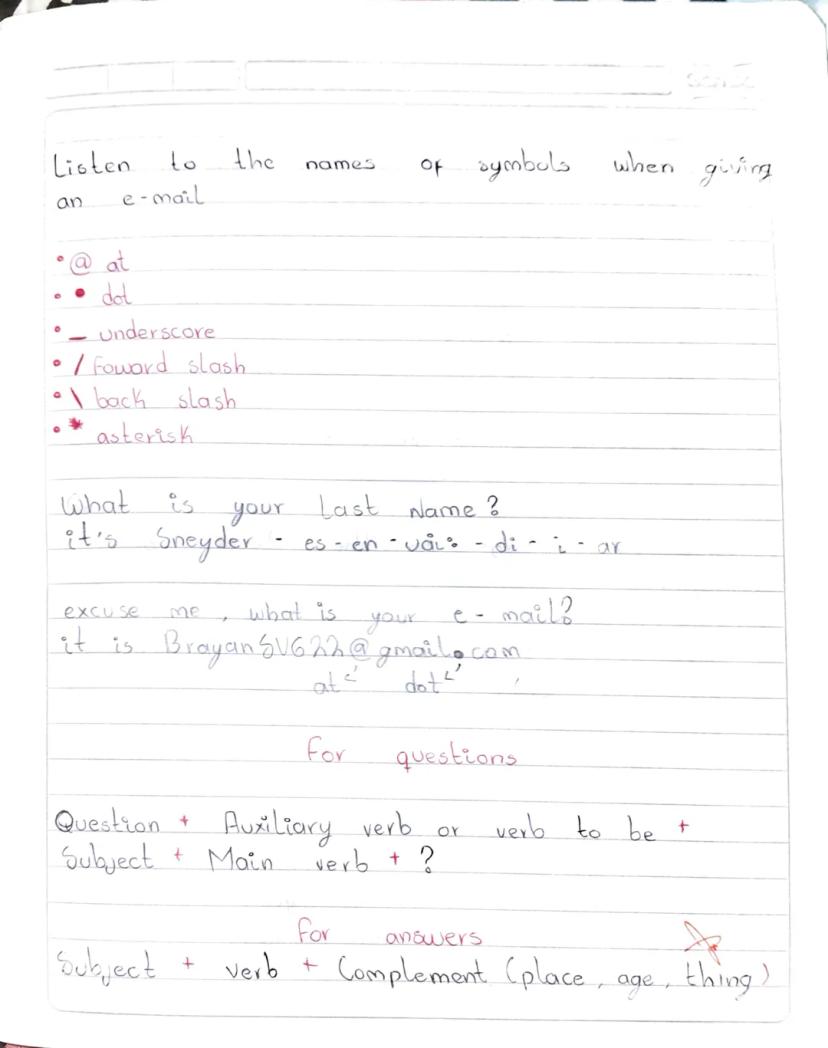 Listen to the names of symbols when giving
an e-mail
• @ at
• • dot
• _ underscore
• / foward slash
• \ back slash
• * asterisk
What is your Last Name?
it's Sneyder - es - en - - di - i - ar
excuse me, what is your e-mail?
it is BrayanSVG22@gmail.com
at dot
for questions
Question + Auxiliary verb or verb to be +
Subject + Main verb + ?
for answers
Subject + verb + Complement (place, age, thing)